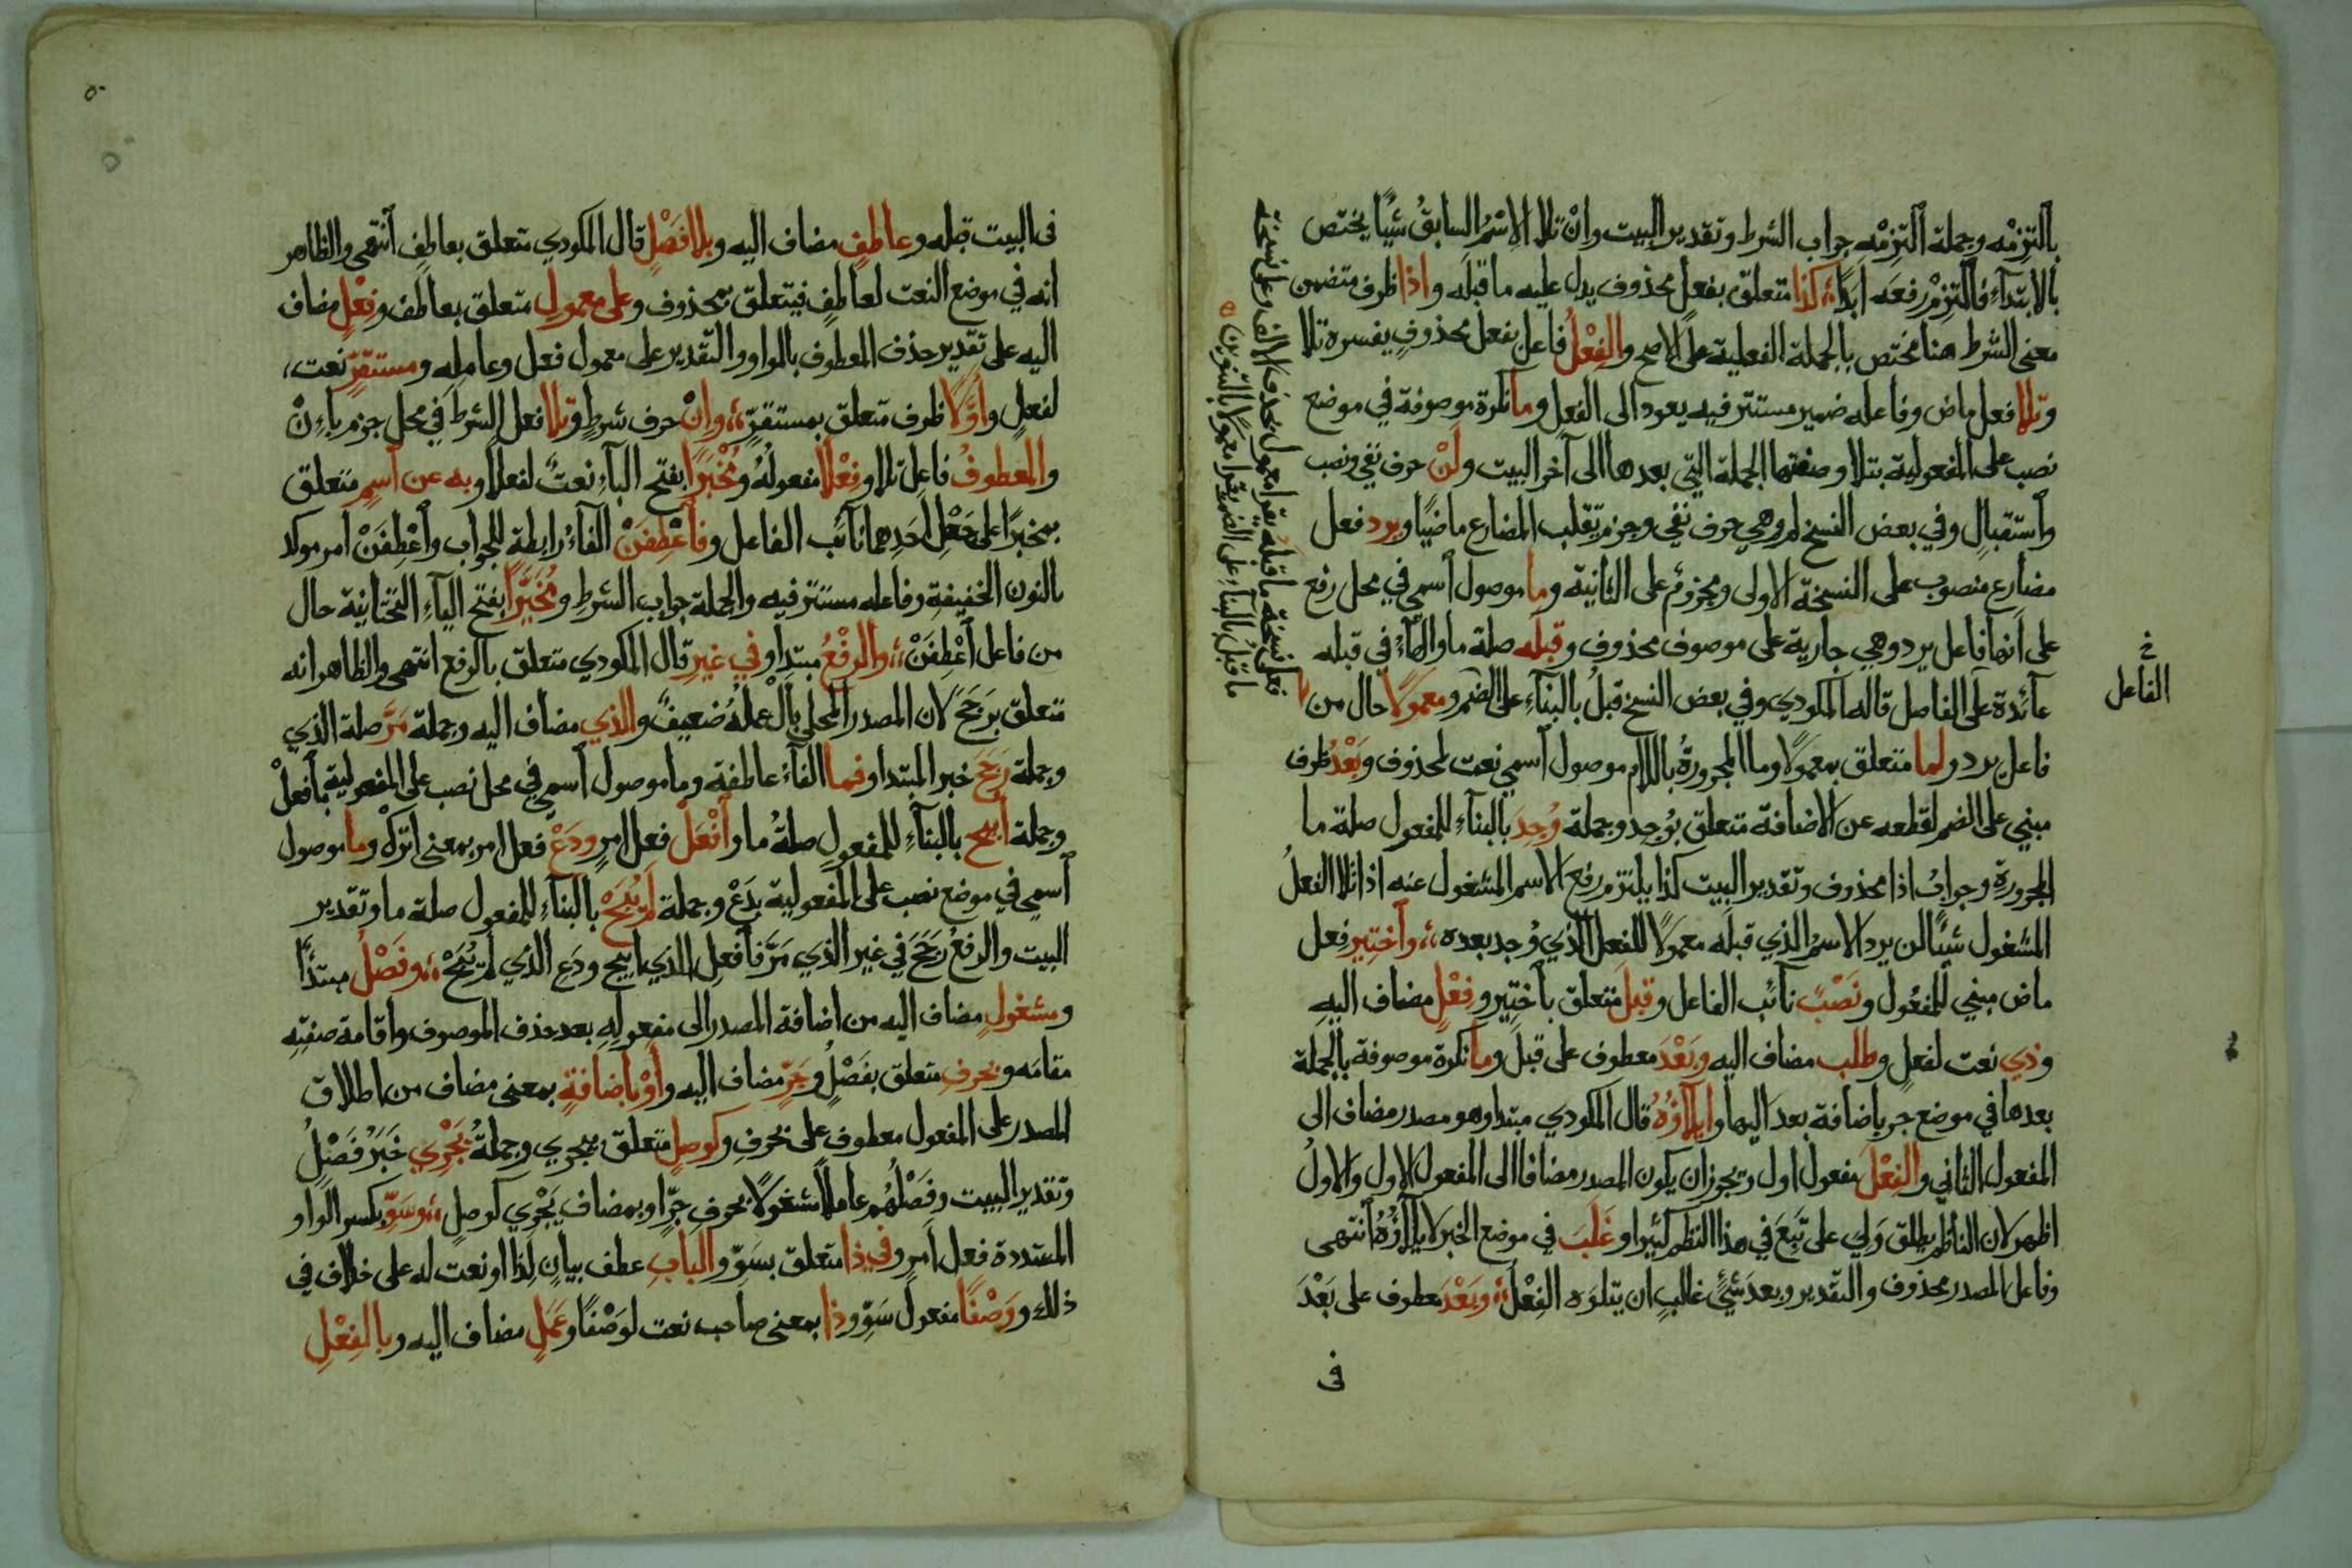 بالتزمه وجملة التزمه جواب الشرط وتقدير البيت وانْ تلا الاِسْمُ السابقُ شيًا يختص
بالابتدآءِ فالتزِمْ رفعَه ابدًا،، كذا متعلّق بفعل محذوف يدل عليه ما قبله واذا ظرف متضمن
معنى الشرط هنا مختص بالجملة الفعلية على الاصح والفِعْلُ فاعل بفعل محذوفٍ يفسره تلا
وتلا فعل ماض وفاعله ضمير مستتر فيه يعود الى الفعل وما نكرة موصوفة في موضع
نصب على المفعولية بتلا وصفتها الجملة التي بعدها الى آخر البيت ولنْ حرف نفي ونصب
واستقبالٍ وفي بعض النسخ لم وهي حرف نفي وجزم تقلب المضارع ماضيًا ويرد فعل
مضارع منصوب على النسخة الاولى ومجزوم على الثانية وما موصول اسمي في محل رفع
على انها فاعل يرد وهي جارية على موصوف محذوف وقبله صلة ما والهآء في قبله
عآئدة على الفاصل قاله المكودي وفي بعض النسخ قبلُ بالبنآءِ على الضم ومعمولًا حال من
فاعل يرد ولما متعلق بمعمولًا وما المجرورةُ باللام موصول اسمي نعت لمحذوف وبَعْدُ ظرف
مبني على الضم لقطعه عن الاضافة متعلق بوُجد وجملة وُجِدَ بالبنآءِ للمفعول صلة ما
المجرورةِ وجوابُ اذا محذوف وتقدير البيت كذا يلتزم رفع الاسم المشغول عنه اذا تلا الفعلُ
المشغول شيئًا لن يرد الاسمُ الذي قبلَه معمولًا للفعل الذي وُجد بعده،، واختِير فعل
ماض مبني للمفعول ونَصْبٌ نآئب الفاعل وقبلَ متعلق باختِير وفِعْلٍ مضاف اليهِ
وذي نعت لفعلٍ وطلب مضاف اليه وبَعْدَ معطوف على قبلَ وما نكرة موصوفة بالجملة
بعدها في موضع جر باضافة بعدَ اليها وايلآؤُهُ قال المكودي مبتدا وهو مصدر مضاف الى
المفعول الثاني والفِعْلَ مفعول اول ويجوز ان يكون المصدر مضافا الى المفعول الاول والاولُ
اظهر لان الناظم يطلق وَلِيَ على تَبِعَ في هذا النظم كثيرا وغَلَبَ في موضع الخبر لايلآؤُهُ انتهى
وفاعل المصدر محذوف والتقدير وبعدَ شئٍ غالبٍ ان يتلوَه الفِعْلُ،، وبَعْدَ معطوف على بَعْدَ
في
الفاعل
فعلى نسخة ما قبلَه يقرا معمول بحذف الالف وعلى نسخة
ما قبلُ بالبنآءِ على الضم يقرا معمولًا بالتنوين
فى البيت قبله وعاطفٍ مضاف اليه وبلا فَصْلٍ قال المكودي متعلق بعاطفٍ انتهى والظاهر
انه في موضع النعت لعاطفٍ فيتعلق بمحذوف وعلى معمولِ متعلق بعاطف وفعْلٍ مضاف
اليه على تقدير حذف المعطوف بالواو والتقدير على معمول فعل وعامله ومستقِرٍّ نعت،
لفعلٍ واوَّلًا ظرف متعلق بمستقرّ،، وانْ حرف شرطٍ وتلا فعل الشرط في محل جزم باءِنْ
والمعطوفُ فاعل تلا وفِعْلًا مفعولُهُ ومُخْبَرًا بفتح البآءِ نعتٌ لفعلا وبه عن اسمٍ متعلق
بمخبرًا على جَعْلِ احَدِهما نآئب الفاعل وفاعْطِفَنْ الفآءُ رابطة للجواب واعْطِفَنْ امر موكد
بالنون الخفيفة وفاعله مستتر فيه والجملة جواب الشرطِ ومُخَيَّرًا بفتح اليآءِ التحتانية حال
من فاعل اعْطِفَنْ،، والرفْعُ مبتدا وفي غيرِ قال المكودي متعلق بالرفع انتهى والظاهر انه
متعلق برَجَحَ لان المصدر المحلى بال عملُهُ ضعيفٌ والذي مضاف اليه وجملة مَرَّ صلة الذي
وجملة رَجَحَ خبر المبتدا وفما الفآءُ عاطفة وما موصول اسمي في محل نصب على المفعولية بافعلْ
وجملة اُبيح بالبنآءِ للمفعولِ صلةُ ما وافْعَلْ فعل امرٍ ودَعْ فعل امر بمعنى اترُكْ وما موصول
اسمي في موضع نصب على المفعولية بدَعْ وجملة لم يُبَحْ بالبنآءِ للمفعول صلة ما وتقدير
البيت والرفعُ رَجَحَ في غير الذي مَرَّ فافعل الذي ابيح ودَعِ الذي لم يُبَحْ،، وفَصْلُ مبتدأ
ومشغولٍ مضاف اليه من اضافة المصدر الى مفعولِهِ بعد حذف الموصوف واقامة صفتِه
مقامَه وبحرفِ متعلق بفَصْلُ وجَرٍّ مضاف اليه واوْ باضافةٍ بمعنى مضاف من اطلاق
المصدر على المفعول معطوف على بحرفِ وكوصلٍ متعلق بيجري وجملةُ يَجْرِي خَبَرُ فَصْلُ
وتقدير البيت وفَصْلُهُم عاملًا مشغولًا بحرفِ جرٍّ او بمضاف يَجْرِي كوصلٍ،، وسَوِّ بكسر الواو
المشددة فعل امرٍ وفي ذا متعلق بسَوِّ والبابِ عطف بيانٍ لِذا او نعت له على خلاف في
ذلك ووَصْفًا مفعول سَوِّ وذا بمعنى صاحب نعت لوَصْفًا وعَمَلٍ مضاف اليه وبالفِعْلِ